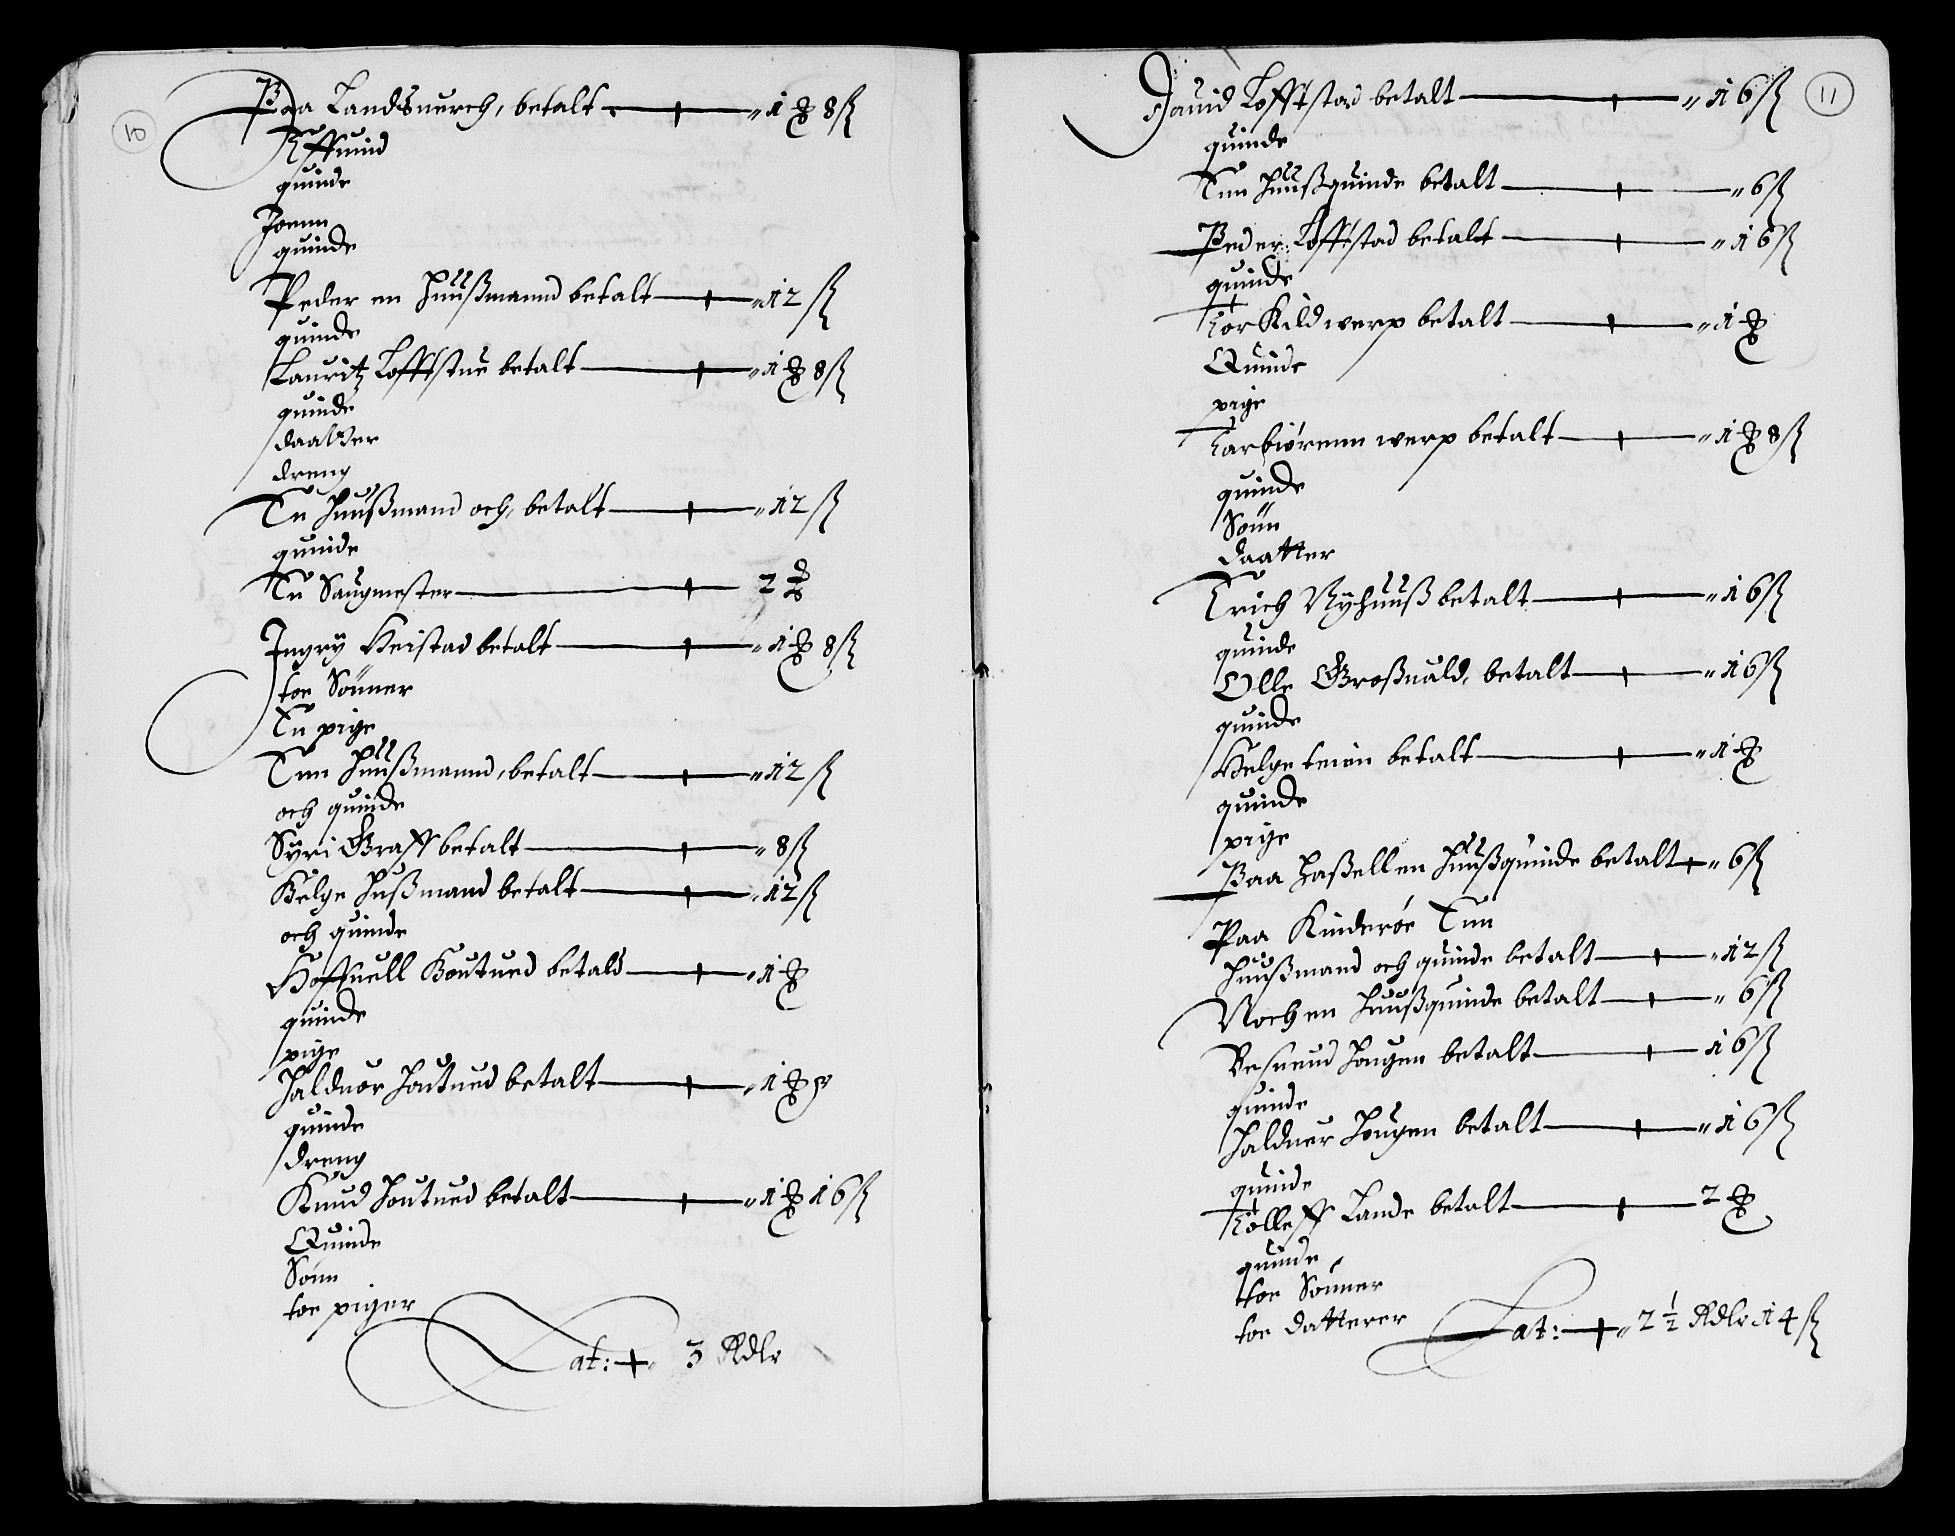 10
Paa Landsuerch, betalt — „ 1 ₰ 8 ß
Effuind
quinde
Joenn
quinde
Peder en Huußmannd betalt — „ 12 ß
quinde
Lauritz Lofftstue betalt — „ 1 ₰ 8 ß
quinde
daatter
dreng
En Huußmand och, betalt — „ 12 ß
quinde
En Saugmester — 2 ₰
Ingrÿ Heistad betalt — „ 1 ₰ 8 ß
toe Sönner
En pige
Enn Huußmannd, betalt — „ 12 ß
och quinde
Sÿri Graff betalt — „ 8 ß
Helge Hußmand betalt — „ 12 ß
och quinde
Hoffuell Houtued betald — „ 1 ₰
quinde
pige
Halduor Houtued betalt — „ 1 ₰
quinde
dreng
Knud Houtued betalt — „ 1 ₰ 16 ß
Quinde
Sönn
toe piger
Lat: — 3 Rdlr
11
Dauid Lofftstad betalt — „ 16 ß
quinde
Enn Huußquinde betalt — „ 6 ß
Peder Lofftstad betalt — „ 16 ß
quinde
Torkild werp betalt — „ 1 ₰
Quinde
pige
Tarbiörenn werp betalt — „ 1 ₰ 8 ß
quinde
Sönn
daatter
Erich Nÿhuuß betalt — „ 16 ß
quinde
Olle Großuald, betalt — „ 16 ß
quinde
Helge teien betalt — „ 1 ₰
quinde
pige
Paa Haßell en Huußquinde betalt — „ 6 ß
Paa Kinderöe Enn
Huußmand och quinde betalt — „ 12 ß
Noch en Huußquinde betalt — „ 6 ß
Hougen betalt — 16 ß
quinde
Halduer Hougen betalt — „ 16 ß
quinde
Tolleff Lande betalt — 2 ₰
quinde
toe Sönner
toe datterer
Lat: — „ 2 ½ Rdlr 14 ß